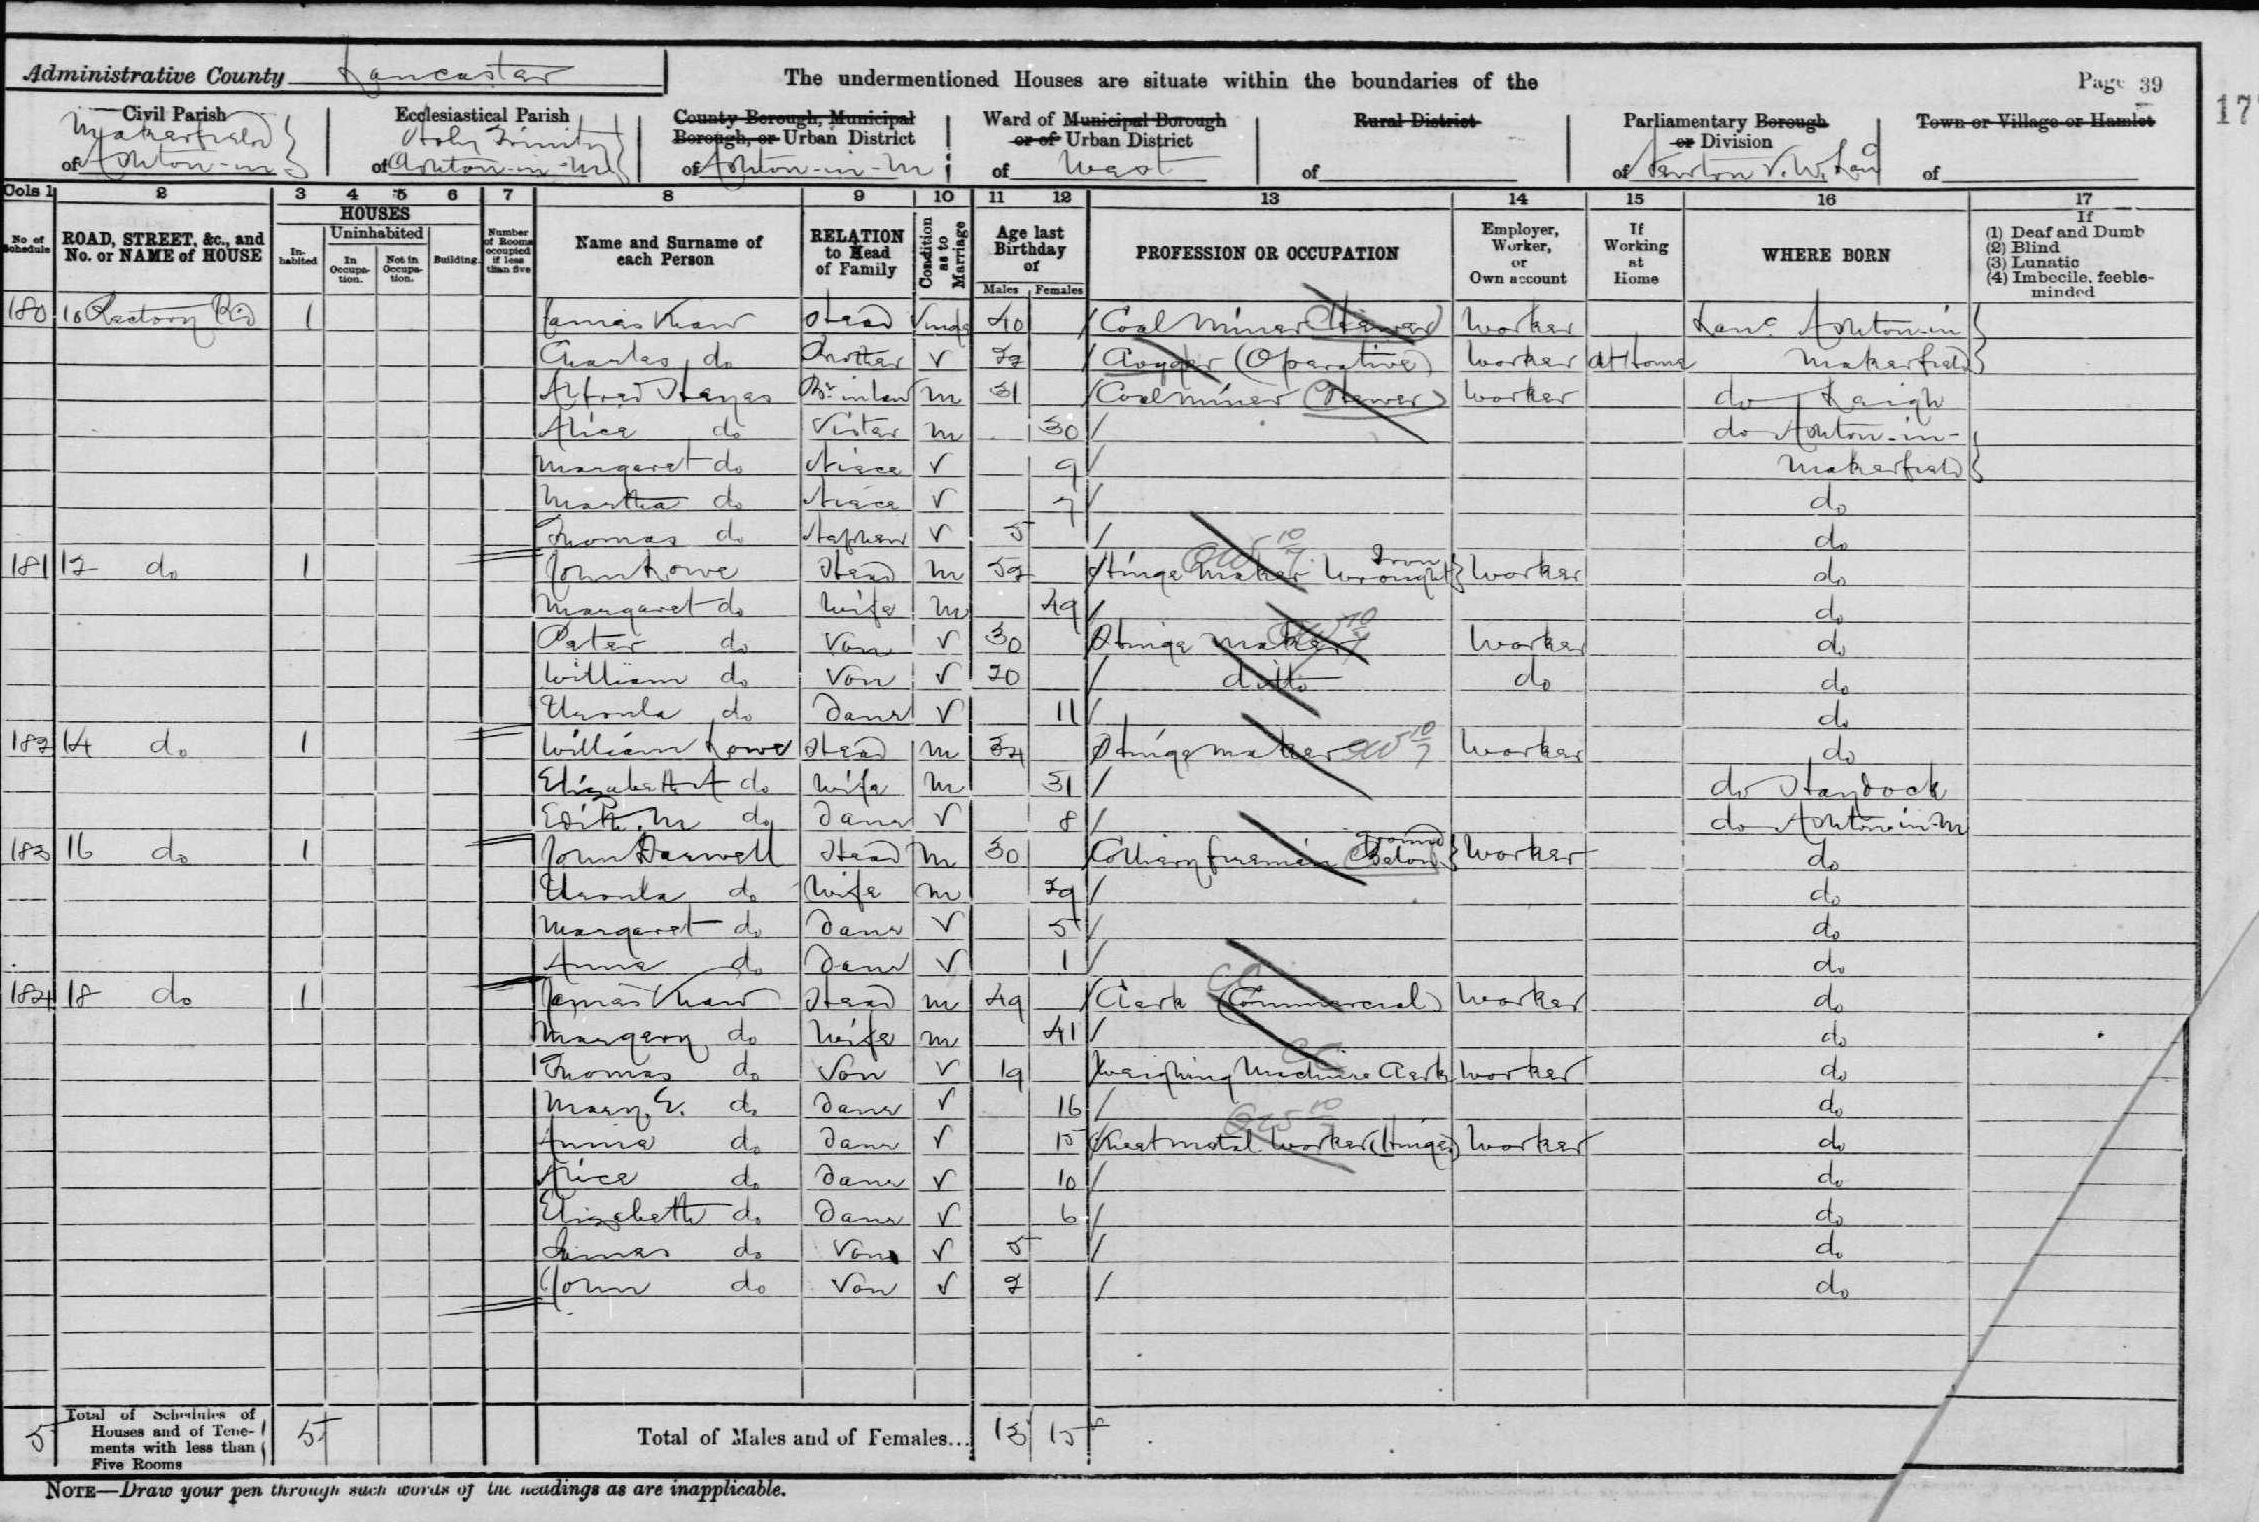 Administrative County Lancaster The undermentioned Houses are situate within the boundaries of the Page 39
17
Civil Parish of Ashton-in Makerfield
Ecclesiastical Parish of Holy Trinity Ashton-in-M
County Borough, Municipal Borough, or Urban District of Ashton-in-M
Ward of Municipal Borough or of Urban District of West
Rural District of
Parliamentary Borough or Division of Newton
Town or Village or Hamlet of
Cols 1 2 3 4 5 6 7 8 9 10 11 12 13 14 15 16 17
No of Schedule
ROAD, STREET, &c., and No. or NAME of HOUSE
HOUSES
Inhabited
Uninhabited
In Occupation.
Not in Occupation.
Building.
Number of Rooms occupied if less than five
Name and Surname of each Person
RELATION to Head of Family
Condition as to Marriage
Age last Birthday of
Males Females
PROFESSION OR OCCUPATION
Employer, Worker, or Own account
If Working at Home
WHERE BORN
If
(1) Deaf and Dumb
(2) Blind
(3) Lunatic
(4) Imbecile, feeble-minded
180 10 Rectory Rd 1 James Shaw Head Single 40 Coal Miner (Hewer) Worker Lanc Ashton-in
Charles do Brother S 22 (Operative) Worker At Home Makerfield
Alfred Hayes Br in law M 31 Coal Miner (Hewer) Worker do Leigh
Alice do Sister M 30 do Ashton-in-
Margaret do Niece S 9 Makerfield
Martha do Niece S 7 do
Thomas do Nephew S 5 do
181 12 do 1 John Lowe Head M 52 Hinge Maker Wrought Iron Worker do
Margaret do Wife M 49 do
Peter do Son S 30 Hinge Maker Worker do
William do Son S 20 ditto do do
Ursula do Daur S 11 do
182 14 do 1 William Lowe Head M 34 Hinge maker Worker do
Elizabeth A do Wife M 31 do Haydock
Edith M do Daur S 8 do Ashton-in-M
183 16 do 1 John Darwell Head M 30 Colliery fireman (Below Ground) Worker do
Ursula do Wife M 29 do
Margaret do Daur S 5 do
Anne do Daur S 1 do
184 18 do 1 James Shaw Head M 49 Clerk (Commercial) Worker do
Margery do Wife M 41 do
Thomas do Son S 19 Weighing Machine Clerk Worker do
Mary E. do Daur S 16 do
Annie do Daur S 15 Sheet metal worker (Hinges) Worker do
Alice do Daur S 10 do
Elizabeth do Daur S 6 do
James do Son S 5 do
John do Son S 2 do
5 Total of Schedules of Houses and of Tenements with less than Five Rooms 5 Total of Males and of Females... 13 15
NOTE—Draw your pen through such words of the headings as are inapplicable.